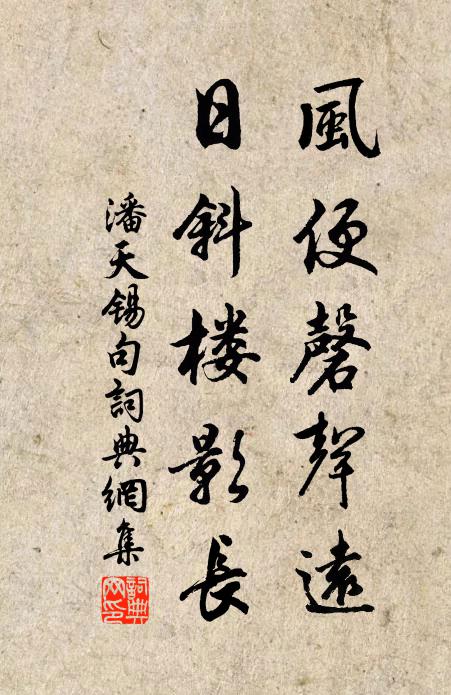 風便磬聲遠
日斜楼影長
潘天锡句詞典網集
詞典网印